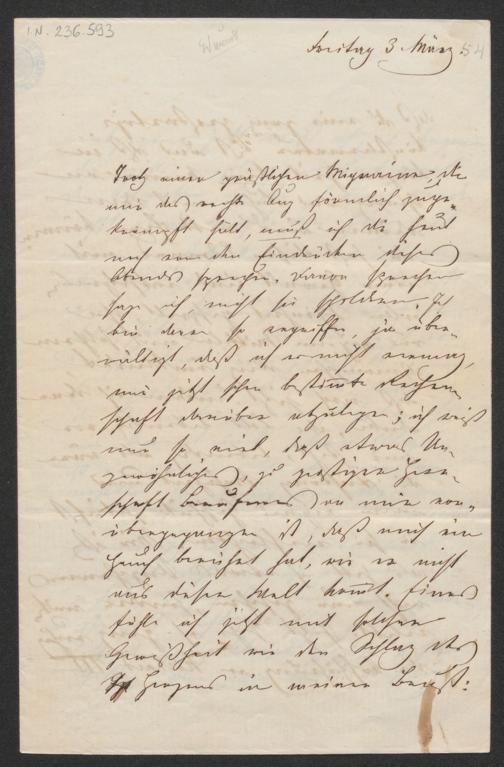 I.N. 236.593
Freitag 3. März 54
Trotz einer gräßlichen Migraine, die
mir das rechte Aug förmlich zuge-
krampft hält, muß ich dir heut
noch von den Eindrücken dieses
Abends sprechen. Davon sprechen
sage ich, nicht sie schildern. Ich
bin davon so ergriffen, ja über-
wältigt, daß ich es nicht vermag,
mir jetzt schon bestimmte Rechen-
schaft darüber abzulegen; ich weiß
nur so viel, daß etwas Un-
gewöhnliches, zu geistiger Herr-
schaft Berufenes an mir vor-
übergegangen ist, daß mich ein
Hauch berührt hat, wie er nicht
aus dieser Welt kommt. Eines
fühle ich jetzt mit solcher
Gewißheit wie den Schlag des
Herzens in meiner Brust: